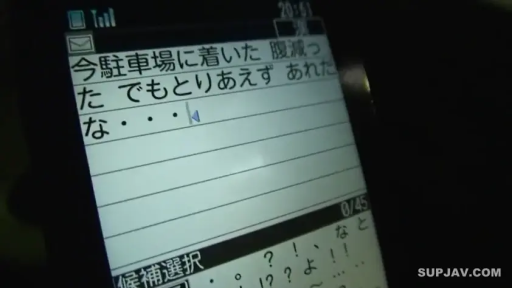 20:41
今駐車場に着いた 腹減っ
た でもとりあえず あれた
な・・・
0/45
候補選択
・ 。 ？ ！ 、 な と
!? ？ よ ！！
～ … ‥
SUPJAV.COM